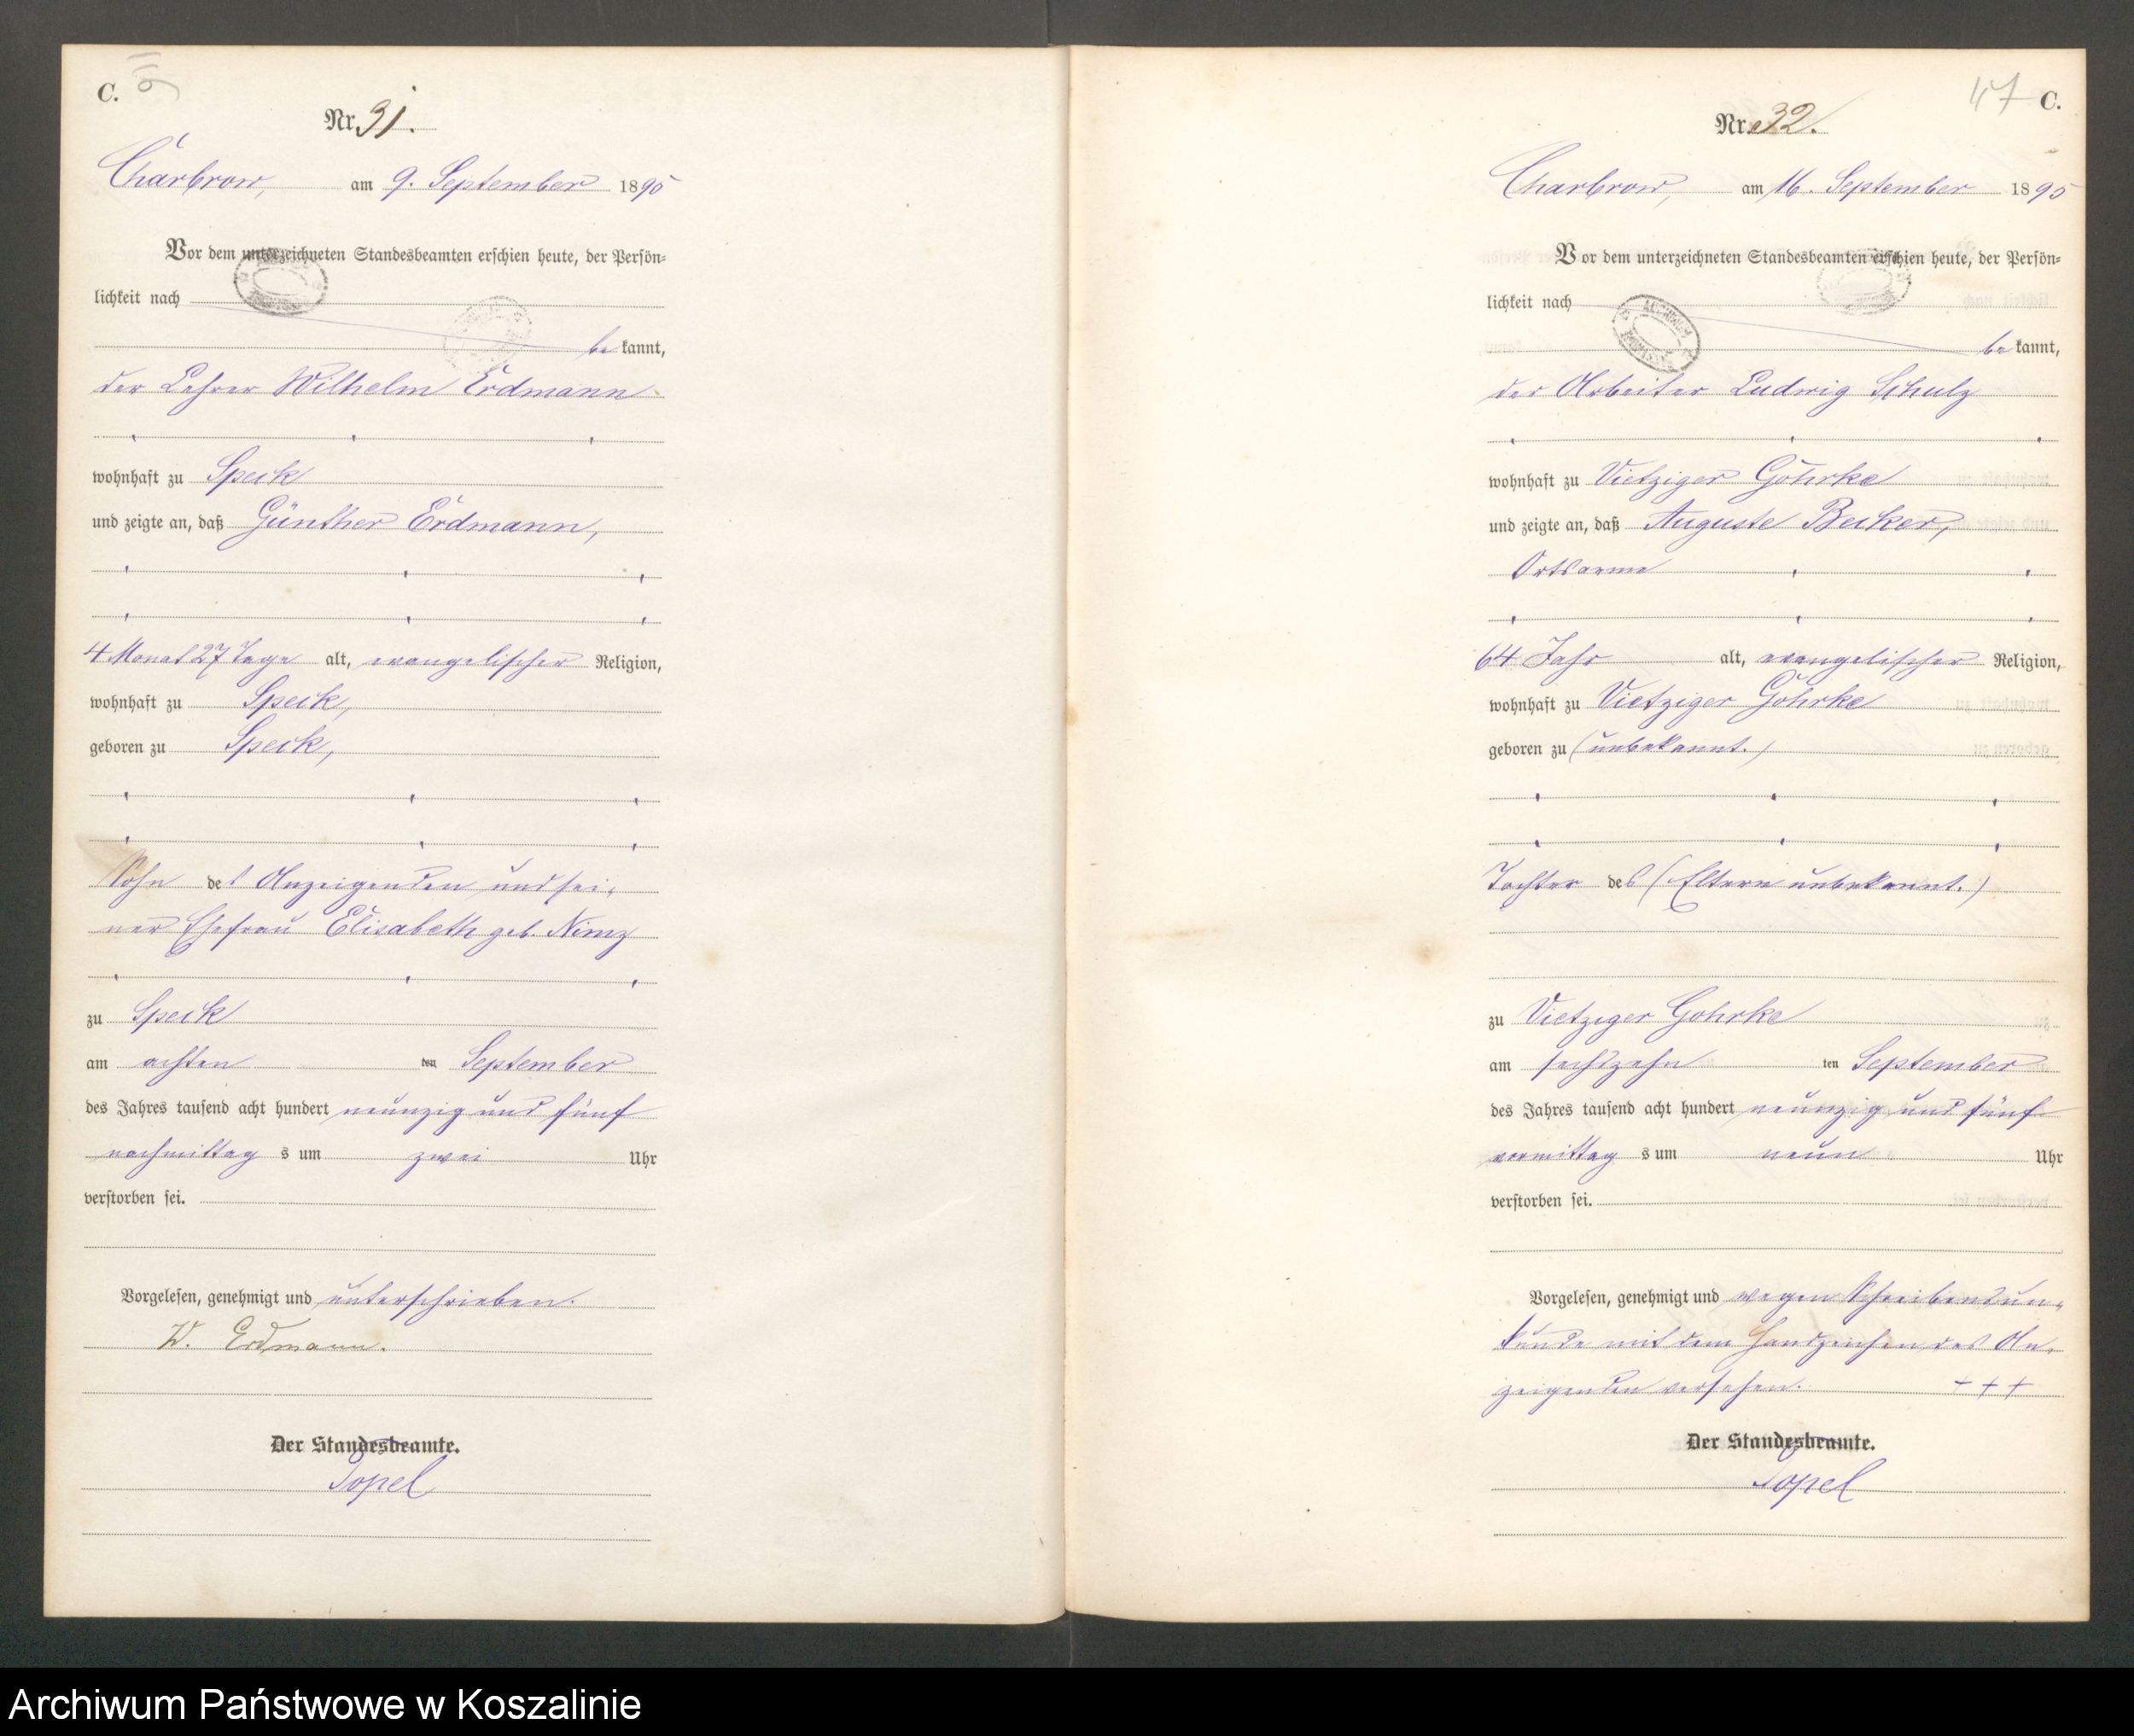 C.
Nr. 31.
Charbrow, am 9. September 1895
Vor dem unterzeichneten Standesbeamten erschien heute, der Persön-
lichkeit nach
bekannt,
der Lehrer Wilhelm Erdmann
wohnhaft zu Speck
und zeigte an, daß Günther Erdmann,
4 Monat 27 Tage alt, evangelischer Religion,
wohnhaft zu Speck,
geboren zu Speck,
Sohn des Anzeigenden und sei-
ner Ehefrau Elisabeth geb. Nimz
zu Speck
am achten ten September
des Jahres tausend acht hundert neunzig und fünf
nachmittags um zwei Uhr
verstorben sei.
Vorgelesen, genehmigt und unterschrieben.
W. Erdmann.
Der Standesbeamte.
Topel
47 C.
Nr. 32.
Charbrow, am 16. September 1895
Vor dem unterzeichneten Standesbeamten erschien heute, der Persön-
lichkeit nach
bekannt,
der Arbeiter Ludwig Schulz
wohnhaft zu Vietziger Gohrke
und zeigte an, daß Auguste Becker,
Ortsarme
64 Jahr alt, evangelischer Religion,
wohnhaft zu Vietziger Gohrke
geboren zu (unbekannt.)
Tochter des (Eltern unbekannt.)
zu Vietziger Gohrke
am sechszehn ten September
des Jahres tausend acht hundert neunzig und fünf
vormittags um neun Uhr
verstorben sei.
Vorgelesen, genehmigt und wegen Schreibensun-
kunde mit dem Handzeichen des An-
zeigenden versehen. + + +
Der Standesbeamte.
Topel
Archiwum Państwowe w Koszalinie